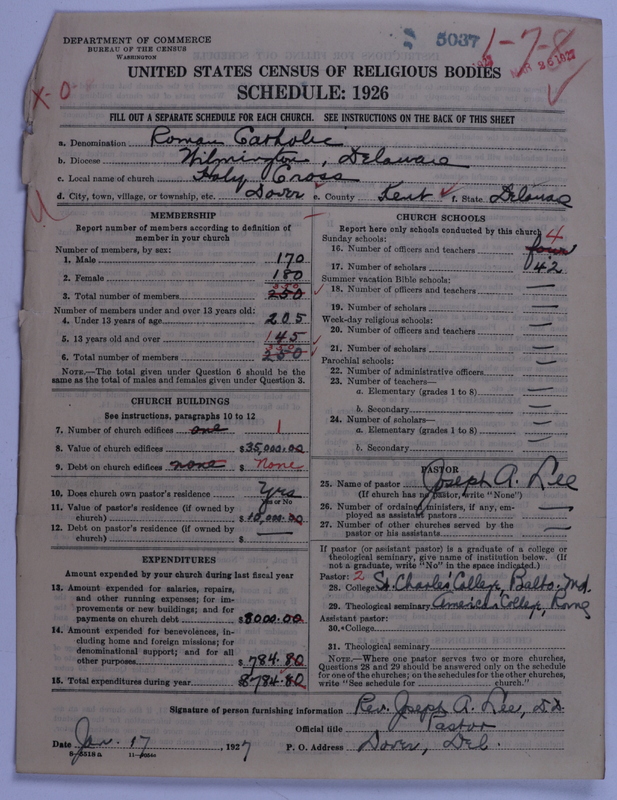 DEPARTMENT OF COMMERCE
BUREAU OF THE CENSUS
WASHINGTON
5037
1-7-8
X-0-8
UNITED STATES CENSUS OF RELIGIOUS BODIES
SCHEDULE: 1926
FILL OUT A SEPARATE SCHEDULE FOR EACH CHURCH. SEE INSTRUCTIONS ON THE BACK OF THIS SHEET
a. Denomination Roman Catholic
b. Diocese Wilmington, Delaware
c. Local name of church Holy Cross
d. City, town, village, or township, etc. Dover e. County Kent f. State Delaware
MEMBERSHIP
Report number of members according to definition of
member in your church
Number of members, by sex:
1. Male 170
2. Female 180
3. Total number of members 350
Number of members under and over 13 years old:
4. Under 13 years of age 205
5. 13 years old and over 145
6. Total number of members 350
NOTE.—The total given under Question 6 should be
same as the total of males and females given under Question 3.
CHURCH BUILDINGS
See instructions, paragraphs 10 to 12
7. Number of church edifices one 1
8. Value of church edifices $35,000.00
9. Debt on church edifices none $ None
10. Does church own pastor's residence Yes
Yes or No
11. Value of pastor's residence (if owned by
church) $10,000.00
12. Debt on pastor's residence (if owned by
church) $ —
EXPENDITURES
Amount expended by your church during last fiscal year
13. Amount expended for salaries, repairs,
and other running expenses; for im-
provements or new buildings; and for
payments on church debt $8000.00
14. Amount expended for benevolences, in-
cluding home and foreign missions; for
denominational support; and for all
other purposes $784.80
15. Total expenditures during year 8784.80
CHURCH SCHOOLS
Report here only schools conducted by this church
Sunday schools:
16. Number of officers and teachers four 4
17. Number of scholars 42
Summer vacation Bible schools:
18. Number of officers and teachers —
19. Number of scholars —
Week-day religious schools:
20. Number of officers and teachers —
21. Number of scholars —
Parochial schools:
22. Number of administrative officers —
23. Number of teachers—
a. Elementary (grades 1 to 8) —
b. Secondary —
24. Number of scholars—
a. Elementary (grades 1 to 8) —
b. Secondary —
PASTOR
25. Name of pastor Joseph A. Lee
(If church has no pastor, write "None")
26. Number of ordained ministers, if any, em-
ployed as assistant pastors —
27. Number of other churches served by the
pastor or his assistants —
If pastor (or assistant pastor) is a graduate of a college or
theological seminary, give name of institution below. (If
not a graduate, write "No" in the space indicated.)
Pastor: 2
28. College St. Charles College, Balto. Md.
29. Theological seminary American College, Rome
Assistant pastor:
30. College
31. Theological seminary
NOTE.—Where one pastor serves two or more churches,
Questions 28 and 29 should be answered only on the schedule
for one of the churches; on the schedules for the other churches,
write "See schedule for church."
Signature of person furnishing information Rev. Joseph A. Lee, D.D.
Official title Pastor
Date Jan. 17, 1927 P. O. Address Dover, Del.